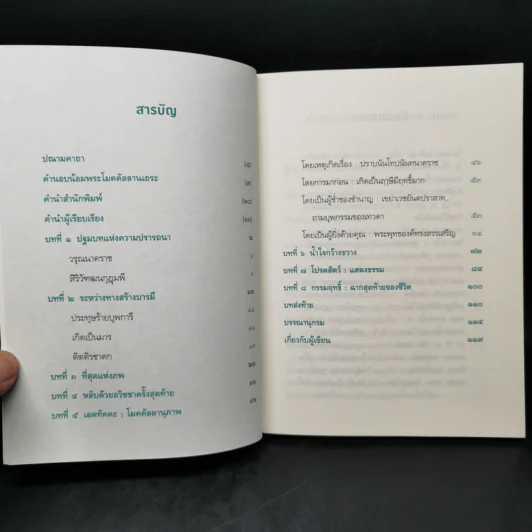 สารบัญ
ปณามคาถา
คำนอบน้อมพระโมคคัลลานเถระ
คำนำสำนักพิมพ์
คำนำผู้เรียบเรียง
บทที่ ๑ ปฐมบทแห่งความปรารถนา ๒
วรุณนาคราช
สิริวัฑฒนกุฎุมพี
บทที่ ๒ ระหว่างทางสร้างบารมี
ประทุษร้ายบุพการี
เกิดเป็นมาร
ติตติรชาดก
บทที่ ๓ ที่สุดแห่งภพ
บทที่ ๔ หลับด้วยอวิชชาครั้งสุดท้าย
บทที่ ๕ เอตทัคคะ : โมคคัลลานุภาพ
โดยเหตุเกิดเรื่อง : ปราบนันโทปนันทนาคราช ๔๖
โดยการมาก่อน : เกิดเป็นฤๅษีมีฤทธิ์มาก ๕๓
โดยเป็นผู้ช่ำชองชำนาญ เขย่าเวชยันตปราสาท,
ถามบุพกรรมของเทวดา ๕๓
โดยเป็นผู้ยิ่งด้วยคุณ : พระพุทธองค์ทรงสรรเสริญ ๖๔
บทที่ ๖ น้ำใจกว้างขวาง ๗๒
บทที่ ๗ โปรดสัตว์ : แสดงธรรม ๘๔
บทที่ ๘ กรรมฤทธิ์ : ฉากสุดท้ายของชีวิต ๑๐๐
บทส่งท้าย ๑๑๐
บรรณานุกรม ๑๑๔
เกี่ยวกับผู้เขียน ๑๑๙